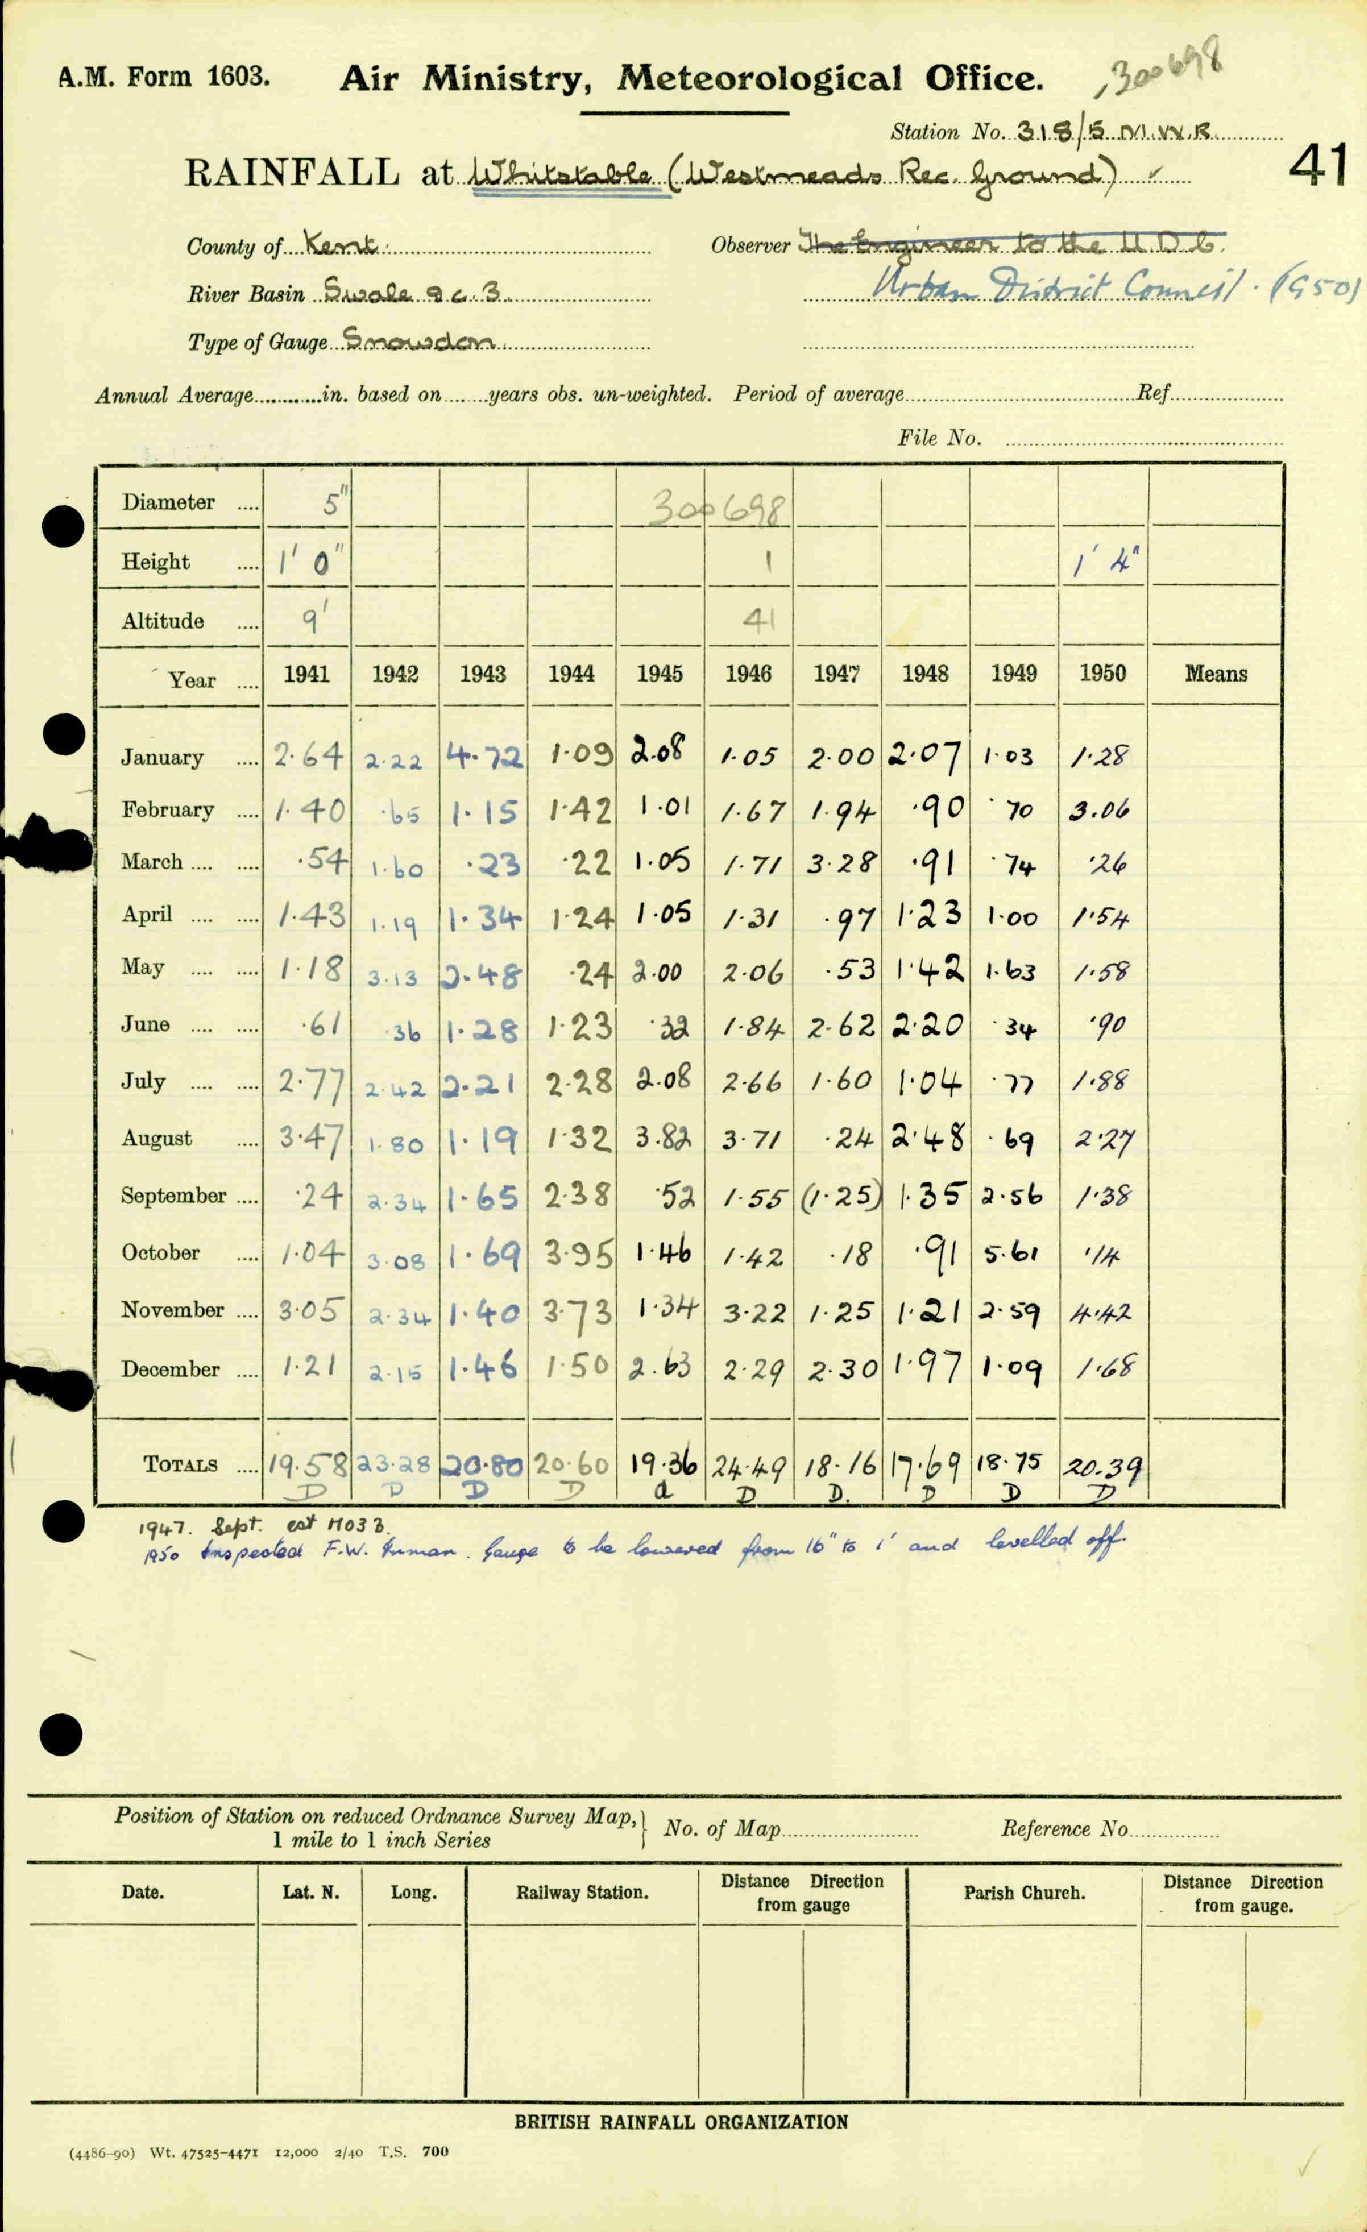 A.M. Form 1603. Air Ministry, Meteorological Office. 300698
Station No. 318/5 M.W.R.
RAINFALL at Whitstable (Westmeads Rec. Ground) ✓ 41
County of Kent. Observer The Engineer to the U.D.C.
River Basin Swale 9 c. 3. Urban District Council. (1950)
Type of Gauge Snowdon.
Annual Average in. based on years obs. un-weighted. Period of average Ref.
File No.
Diameter .... 5" 300698
Height .... 1' 0" 1 1' 4"
Altitude .... 9' 41
Year .... 1941 1942 1943 1944 1945 1946 1947 1948 1949 1950 Means
January .... 2.64 2.22 4.72 1.09 2.08 1.05 2.00 2.07 1.03 1.28
February .... 1.40 .65 1.15 1.42 1.01 1.67 1.94 .90 .70 3.06
March .... .... .54 1.60 .23 .22 1.05 1.71 3.28 .91 .74 .26
April .... .... 1.43 1.19 1.34 1.24 1.05 1.31 .97 1.23 1.00 1.54
May .... .... 1.18 3.13 2.48 .24 2.00 2.06 .53 1.42 1.63 1.58
June .... .... .61 .36 1.28 1.23 .32 1.84 2.62 2.20 .34 .90
July .... .... 2.77 2.42 2.21 2.28 2.08 2.66 1.60 1.04 .77 1.88
August .... 3.47 1.80 1.19 1.32 3.82 3.71 .24 2.48 .69 2.27
September .... .24 2.34 1.65 2.38 .52 1.55 (1.25) 1.35 2.56 1.38
October .... 1.04 3.08 1.69 3.95 1.46 1.42 .18 .91 5.61 .14
November .... 3.05 2.34 1.40 3.73 1.34 3.22 1.25 1.21 2.59 4.42
December .... 1.21 2.15 1.46 1.50 2.63 2.29 2.30 1.97 1.09 1.68
TOTALS .... 19.58 23.28 20.80 20.60 19.36 24.49 18.16 17.69 18.75 20.39
D D D D d D D. D D D
1947. Sept. est M03 3.
1950 Inspected F.W. Inman. Gauge to be lowered from 16" to 1' and levelled off.
Position of Station on reduced Ordnance Survey Map, } No. of Map Reference No.
1 mile to 1 inch Series
Date. Lat. N. Long. Railway Station. Distance Direction from gauge Parish Church. Distance Direction from gauge.
BRITISH RAINFALL ORGANIZATION
(4486-90) Wt. 47525-4471 12,000 2/40 T.S. 700